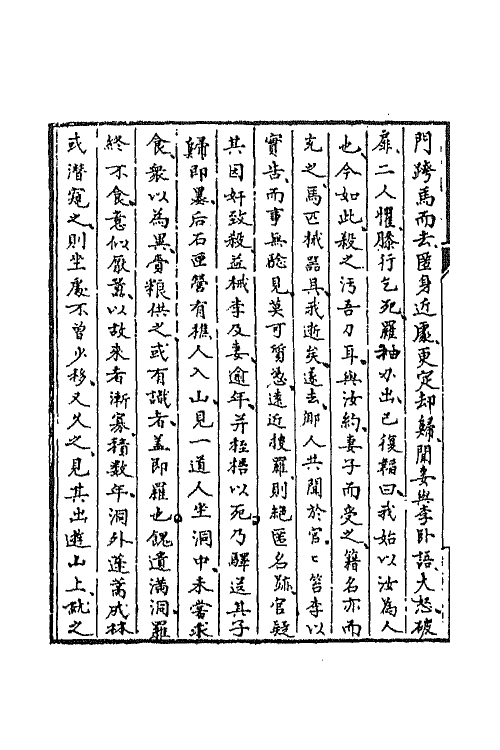 門跨馬而去匿身近處更定却歸聞妻與李臥語大怒破
扉二人懼膝行乞死羅抽刀出已復韜曰我始以汝為人
也今如此殺之汚吾刀耳與汝約妻子而受之籍名亦而
充之馬匹械器具我逝矣遂去鄉人共聞於官〻笞李以
實告而事無驗見莫可質憑遠近搜羅則絕匿名跡官疑
其因奸致殺益械李及妻逾年并桎梏以死乃驛送其子
歸即墨后石匣營有樵人入山見一道人坐洞中未嘗求
食衆以為異賫粮供之或有識者蓋即羅也餽遺滿洞羅
終不食意似厭囂以故來者漸寡積數年洞外蓬蒿成林
或潛窺之則坐處不曾少移又久之見其出遊山上就之